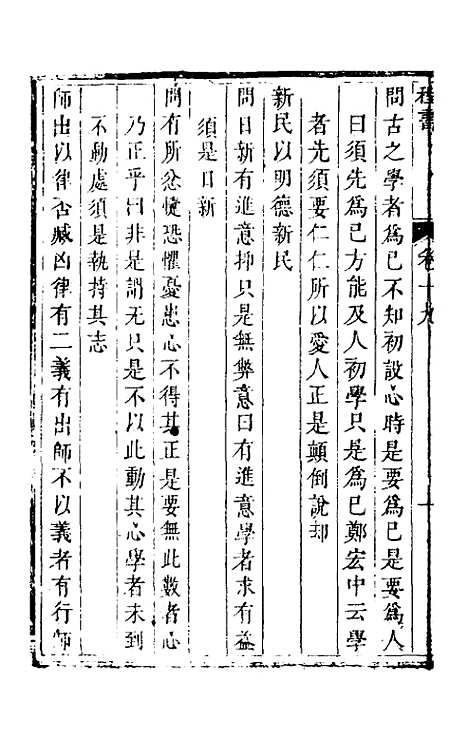 程書 卷十九 十
問古之學者爲己不知初設心時是要爲己是要爲人
曰須先爲己方能及人初學只是爲己鄭宏中云學
者先須要仁仁所以愛人正是顛倒說却
新民以明德新民
問日新有進意抑只是無弊意曰有進意學者求有益
須是日新
問有所忿懥恐懼憂患心不得其正是要無此數者心
乃正乎曰非是謂无只是不以此動其心學者未到
不動處須是執持其志
師出以律否臧凶律有二義有出師不以義者有行師